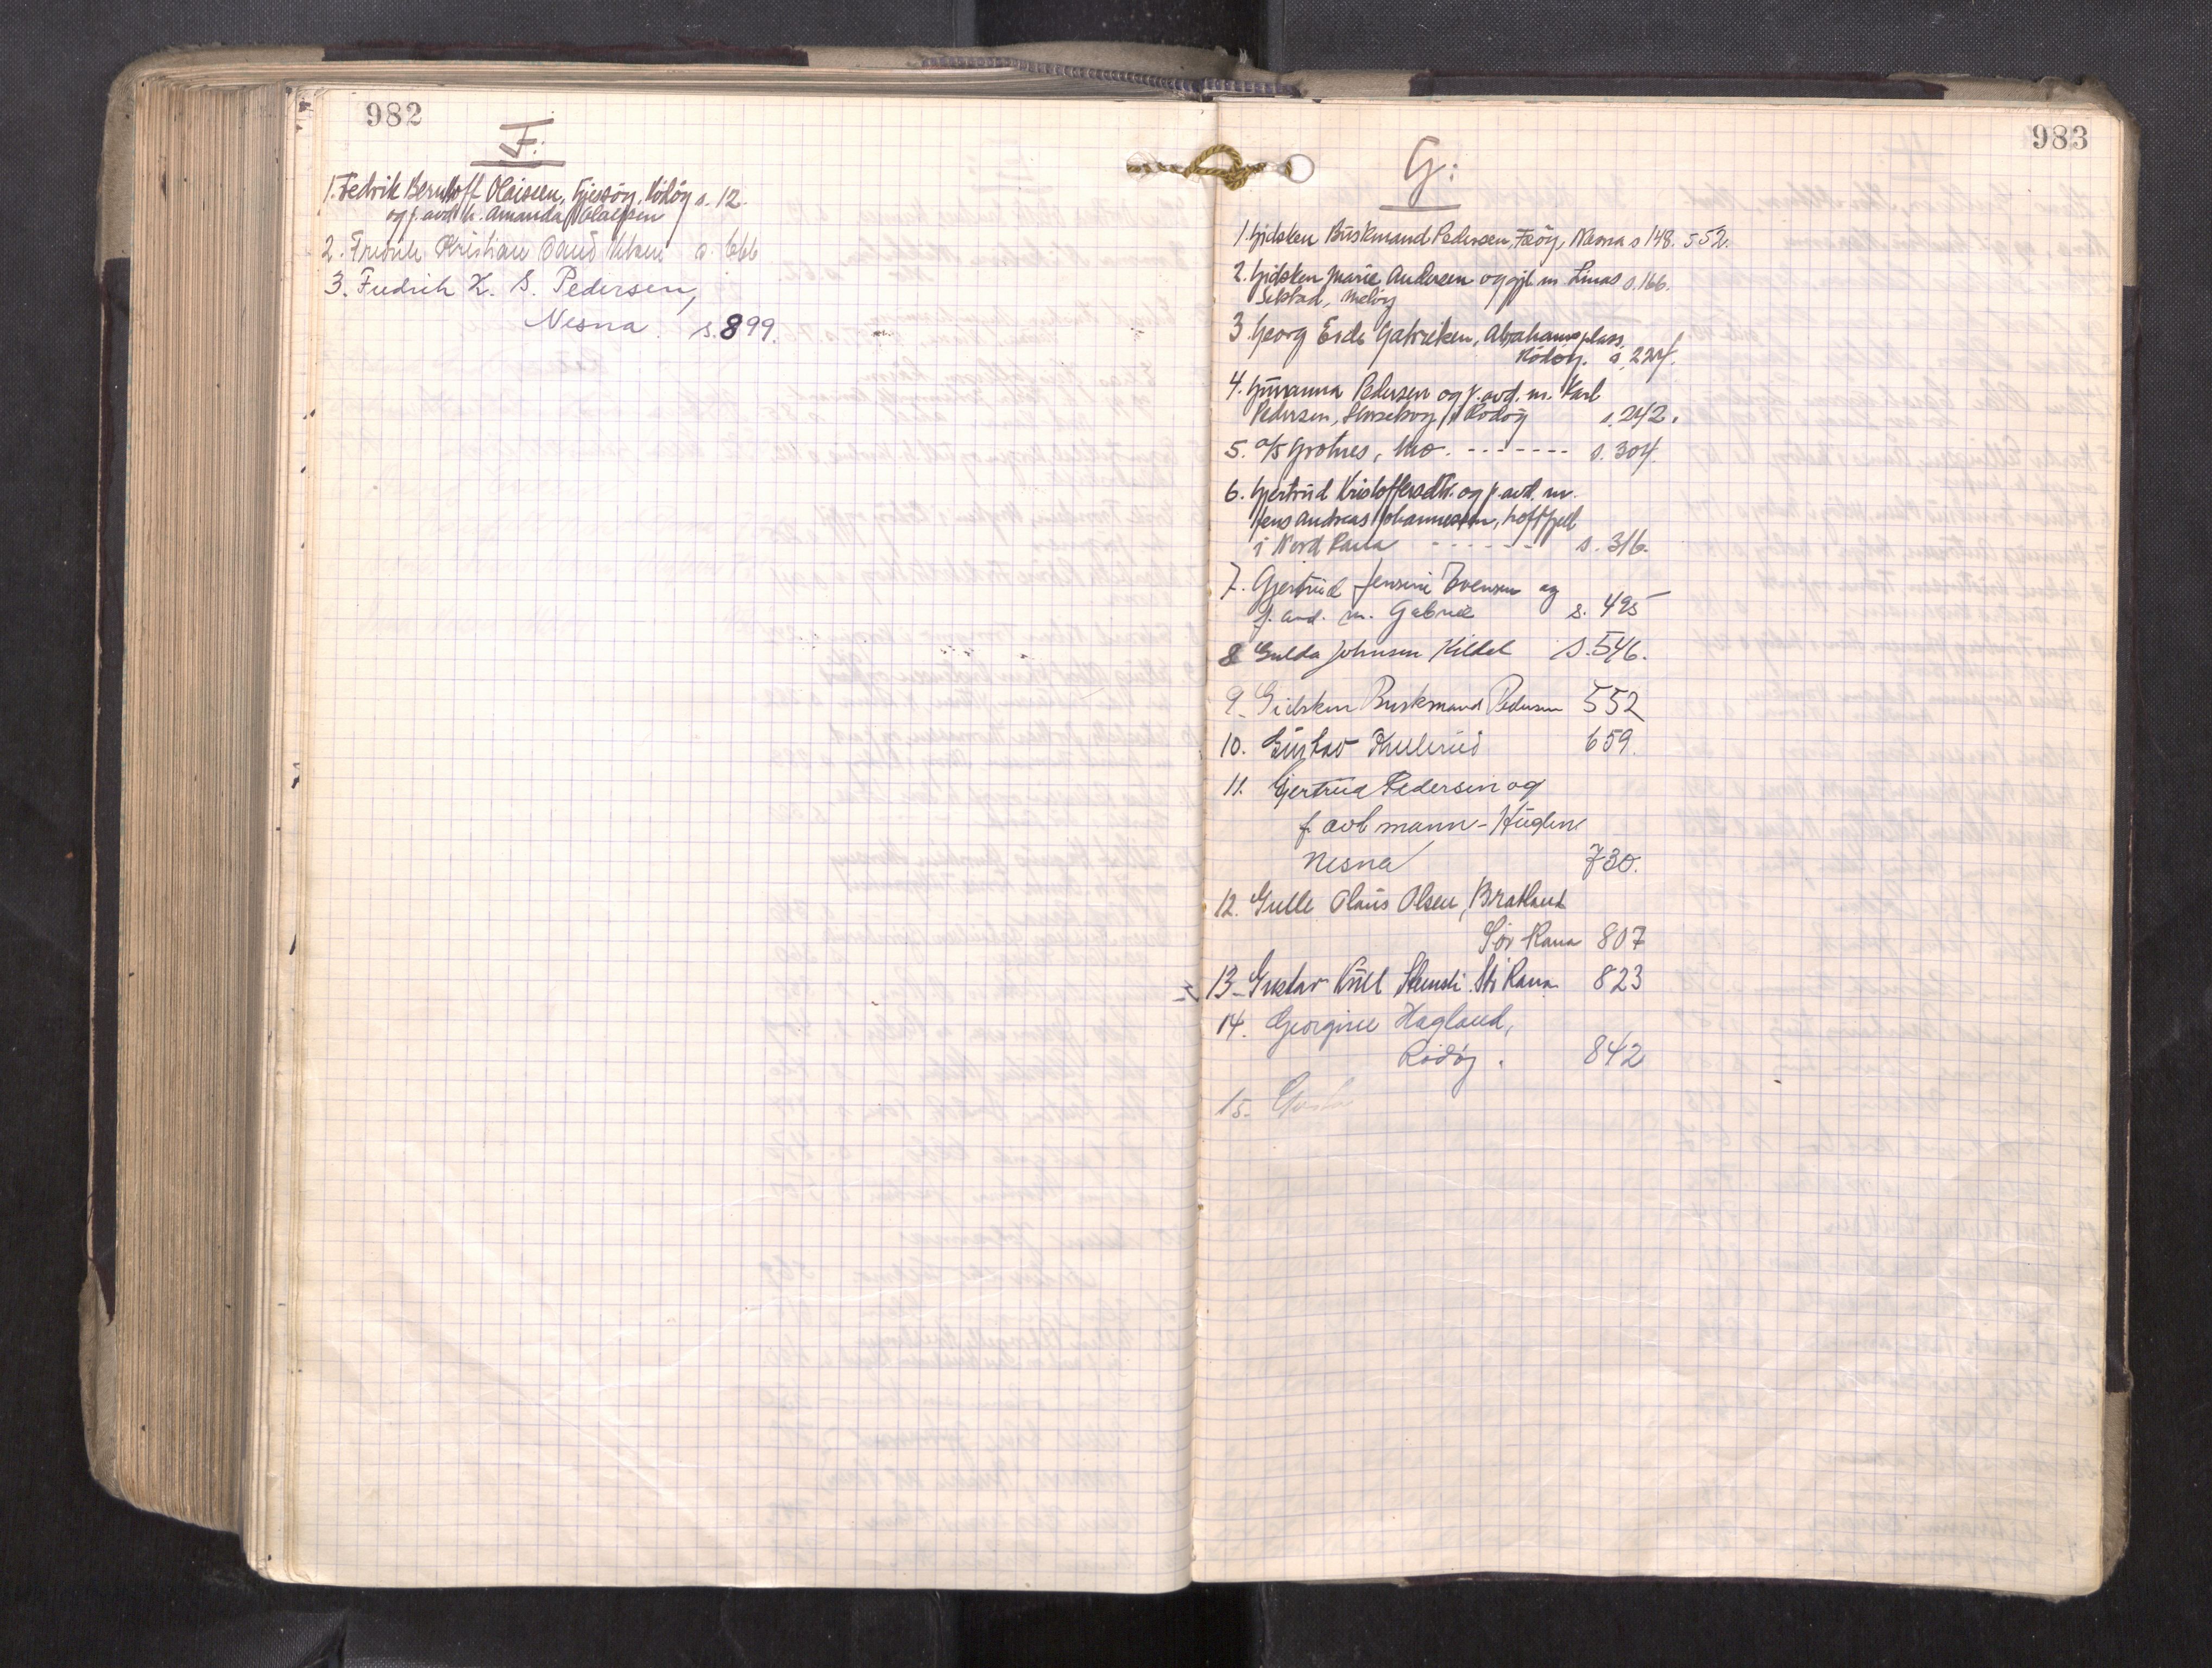 982
F:
1. Fedrik Bernhoff Olaisen, Gjesøy, Rödöy s. 12.
og f. avd. h. Amanda Olaisen
2. Fredrik Kristian David s. 666
3. Fredrich K. S. Pedersen,
Nesna. s. 899.
983
G:
1. Gidsken Buskmand Pedersen, Nesna s 148. 552.
2. Gidsken Marie Andersen og gjl. m Linas s. 166.
Selstad, Meløy
3. Georg Gabrielsen, Abrahamsplass,
Rödöy. s. 224.
4. Pedersen og f. avd. m. Karl
Pedersen, Rødøy s. 242.
5. A/S Grotnes, Mo. - - - - - - - s. 304.
6. Gjertrud Kristoffersdtr. og f. avd. m.
Jens Andreas Johannessen,
i Nord Rana - - - - - - s. 316.
7. Gjertrud Jensine Evensen og
f. avd. m. Gabriel s. 495
8 Gulda Johnsen Kildal s. 546.
9. Gidsken Buskmand Pedersen 552
10. Gustav Kullerud 659.
11. Gjertrud Pedersen og
f. avd mann - Huglen
Nesna 730.
12. Gulle Olaus Olsen, Bratland
Sør Rana 807
13. Gustav Rana 823
14. Georgine Hagland,
Rødøy. 842
15.